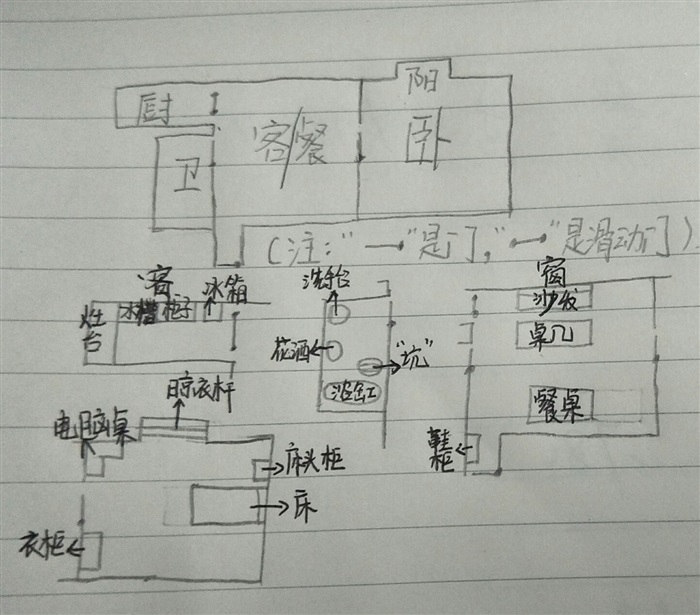 阳
厨
客/餐
卧
卫
(注:"—•"是门,"•—•"是滑动门)
窗
冰箱
洗手台
窗
水槽
柜子
沙发
灶台
花洒
"坑"
桌几
浴缸
晾衣杆
餐桌
电脑桌
鞋柜
床头柜
床
衣柜